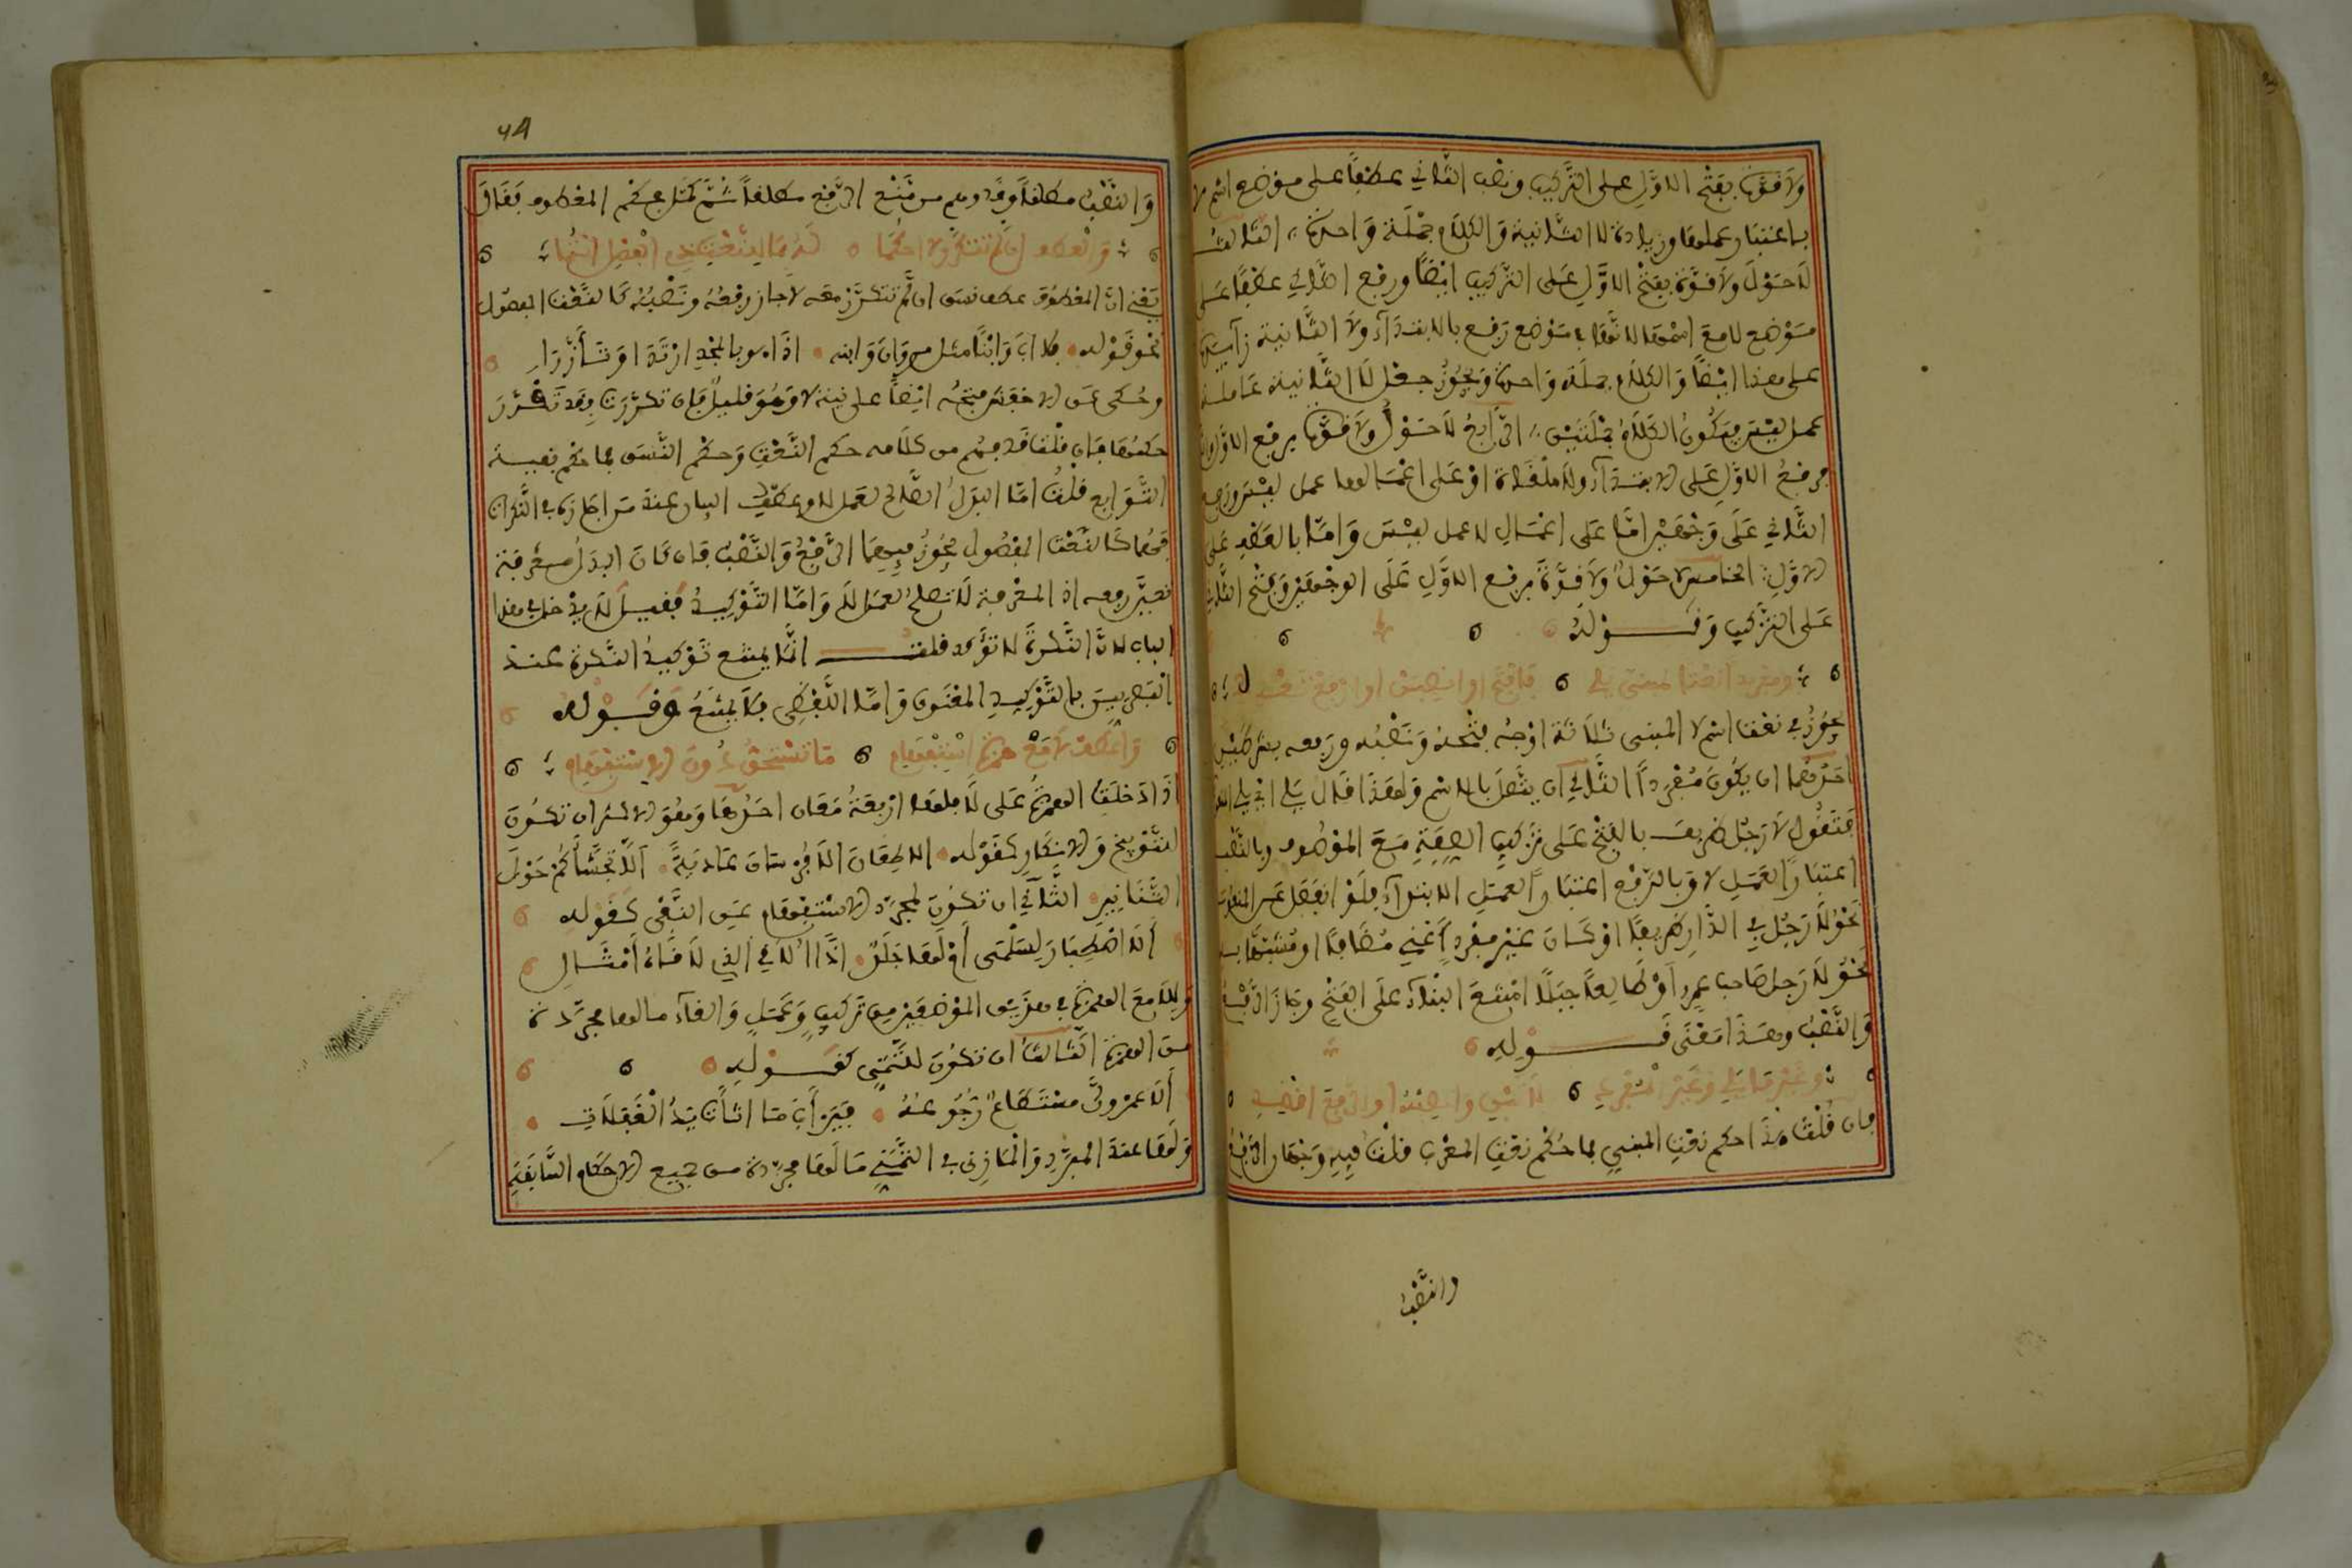 ولا قوة بفتح الاول على التركيب ونصب الثاني عطفا على موضع اسم لا
باعتبار عملها وزيادة لا الثانية والكلام جملة واحدة، الثالث
لا حول ولا قوة بفتح الاول على التركيب ايضا ورفع الثاني عطفا على
موضع لا مع اسمها لانها في موضع رفع بالابتداء ولا الثانية زائدة
على هذا ايضا والكلام جملة واحدة ويجوز جعل لا الثانية عاملة
عمل ليس ويكون الكلام جملتين، الرابع لا حول ولا قوة برفع الاول والثاني
فرفع الاول على الابتداء ولا ملغاة او على اعمالها عمل ليس ورفع
الثاني على وجهين اما على اعمال لا عمل ليس واما بالعطف على
الاول: الخامس لا حول ولا قوة برفع الاول على الوجهين وفتح الثاني
على التركيب وقوله
ومفردا نعتا لمبني يلي فافتح او انصبن او ارفع تعدل
يجوز في نعت اسم لا المبني ثلاثة اوجه فتحه ونصبه ورفعه بشرطين
احدهما ان يكون مفردا الثاني ان يتصل بالاسم ولهذا قال يلي اي يلي المنعوت
فتقول لا رجل ظريف بالفتح على تركيب الصفة مع الموصوف وبالنصب
اعتبارا لعمل لا وبالرفع اعتبارا لعمل الابتداء فلو انفصل عن المنعوت
نحو لا رجل في الدار ظريفا او كان غير مفرد أعني مضافا او مشبها به
نحو لا رجل صاحب عمرو او طالعا جبلا امتنع البناء على الفتح وجاز الرفع
والنصب وهذا معنى قوله
وغير ما يلي وغير المفرد لا تبن وانصبه او الرفع اقصد
فان قلت هذا حكم نعت المبني فما حكم نعت المعرب قلت فيه وجهان الرفع
والنصب
٦٨
والنصب مطلقا وقد وهم من منع الرفع مطلقا ثم كمل حكم المعطوف فقال
والعطف ان لم تتكرر لا احكما له بما للنعت ذي الفصل انتمى
يعني ان المعطوف عطف نسق ان لم تتكرر معه لا جاز رفعه ونصبه كالنعت المفصول
نحو قوله فلا اب وابنا مثل مروان وابنه اذا هو بالمجد ارتدى وتأزرا
وحكى عن الاخفش فتحه ايضا على نية لا وهو قليل فان تكررت وقد تقرر
حكمها فان قلت قد فهم من كلامه حكم النعت وحكم النسق فما حكم بقية
التوابع قلت اما البدل الصالح لعمل لا وعطف البيان عند من اجازه في النكرات
فهما كالنعت المفصول يجوز فيهما الرفع والنصب فان كان البدل معرفة
تعين رفعه اذ المعرفة لا تصلح لعمل لا واما التوكيد فقيل لا يدخل في هذا
الباب لان النكرة لا تؤكد قلت انما يمتنع توكيد النكرة عند
البصريين بالتوكيد المعنوي واما اللفظي فلا يمتنع وقوله
واعط لا مع همزة استفهام ما تستحق دون الاستفهام
اذا دخلت الهمزة على لا فلها اربعة معان احدها وهو الاكثر ان تكون
للتوبيخ والانكار كقوله الا طعان الا فرسان عادية الا تجشأكم حول
التنانير الثاني ان تكون لمجرد الاستفهام عن النفي كقوله
ألا اصطبار لسلمى أم لها جلد اذا ألاقي الذي لاقاه أمثالي
وللا مع الهمزة في هذين الموضعين من تركيب وعمل والغاء ما لها مجردة
من الهمزة الثالث ان تكون للتمني كقوله
ألا عمر ولى مستطاع رجوعه فيرأب ما اثأت يد الغفلات
ولها عند المبرد والمازني في التمني ما لها مجردة من جميع الاحكام السابقة